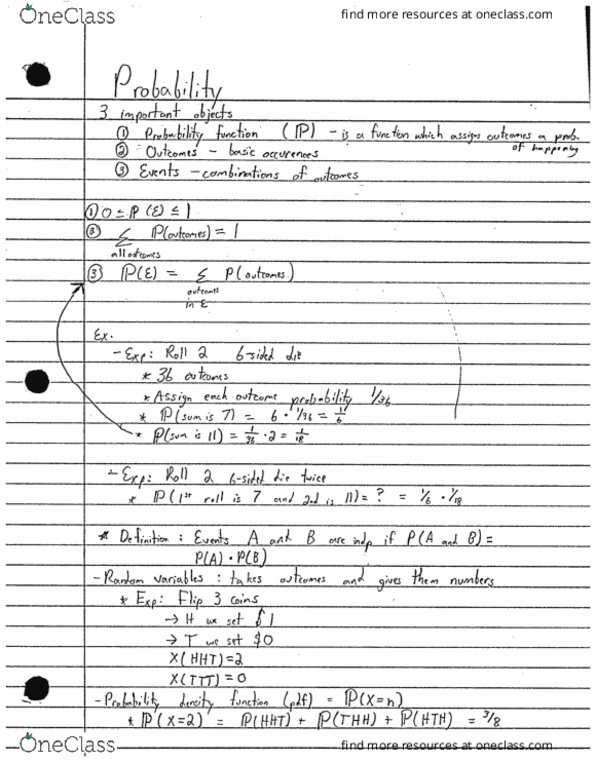 OneClass find more resources at oneclass.com
Probability
3 important objects
① Probability function (ℙ) - is a function which assigns outcomes a prob.
of happening
② Outcomes - basic occurences
③ Events - combinations of outcomes
① 0 ≤ ℙ(E) ≤ 1
② ∑ ℙ(outcomes) = 1
all outcomes
③ ℙ(E) = ∑ P(outcomes)
outcomes
in E
Ex.
- Exp: Roll 2 6-sided die
* 36 outcomes
* Assign each outcome probability 1/36
* ℙ(sum is 7) = 6 · 1/36 = 1/6
* P(sum is 11) = 1/36 · 2 = 1/18
- Exp: Roll 2 6-sided die twice
* ℙ(1st roll is 7 and 2nd is 11) = ? = 1/6 · 1/18
* Definition: Events A and B are indp if P(A and B) =
P(A) · P(B)
- Random variables: takes outcomes and gives them numbers
* Exp: Flip 3 coins
→ H we set $1
→ T we set $0
X(HHT)=2
X(TTT)=0
- Probability density function (pdf) = ℙ(X=n)
* ℙ(X=2) = ℙ(HHT) + ℙ(THH) + ℙ(HTH) = 3/8
OneClass find more resources at oneclass.com